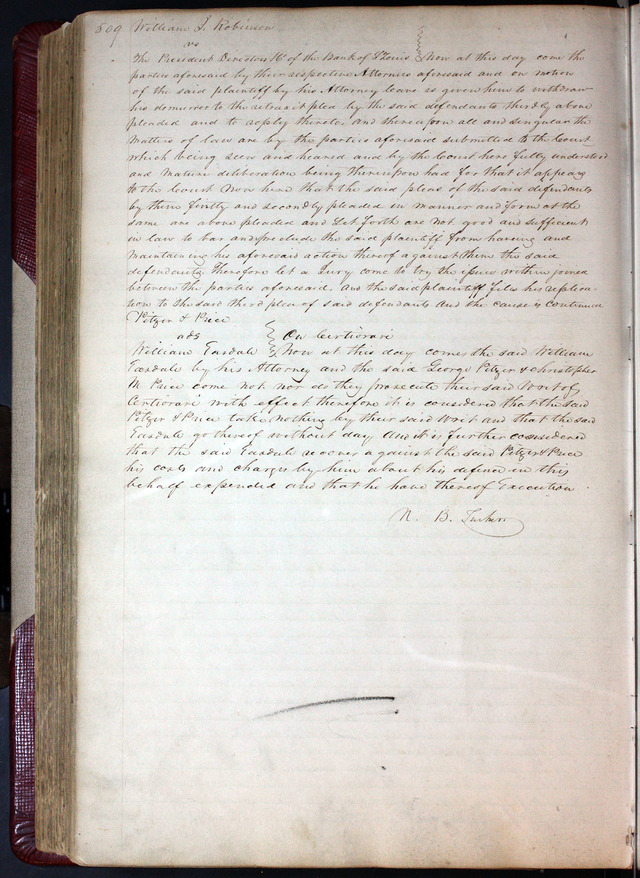 509 William J. Robinson
vs
The President Directors &c of the Bank of St Louis Now at this day come the
parties aforesaid by their respective Attornies aforesaid and on motion
of the said plaintiff by his Attorney leave is given him to withdraw
his demurrer to the retraxit plea by the said defendants thirdly above
pleaded and to reply thereto. and thereupon all and singular the
Matters of law are by the parties aforesaid submitted to the Court
which being seen and heared and by the Court here fully understood
and mature deliberation being thereupon had for that it appears
to the Court now here that the said pleas of the said defendants
by them firstly and secondly pleaded in manner and form as the
same are above pleaded and set forth are not good and sufficient
in law to bar and preclude the said plaintiff from having and
maintaining his aforesaid action thereof against them the said
defendants Therefore let a Jury come to try the issues within joined
between the parties aforesaid. and the said plaintiff files his replica-
tion to the said third plea of said defendants and the cause is continued
Pitzer & Price
ads On Certiorari
William Easdale Now at this day comes the said William
Easdale by his Attorney and the said George Pitzer & Christopher
M Price come not nor do they prosecute their said Writ of
Certiorari with effect therefore it is considered that the said
Pitzer & Price take nothing by their said Writ and that the said
Easdale go thereof without day and it is further considered
that the said Easdale recover against the said Pitzer & Price
his costs and charges by him about his defence in this
behalf expended and that he have thereof Execution.
N. B. Tucker